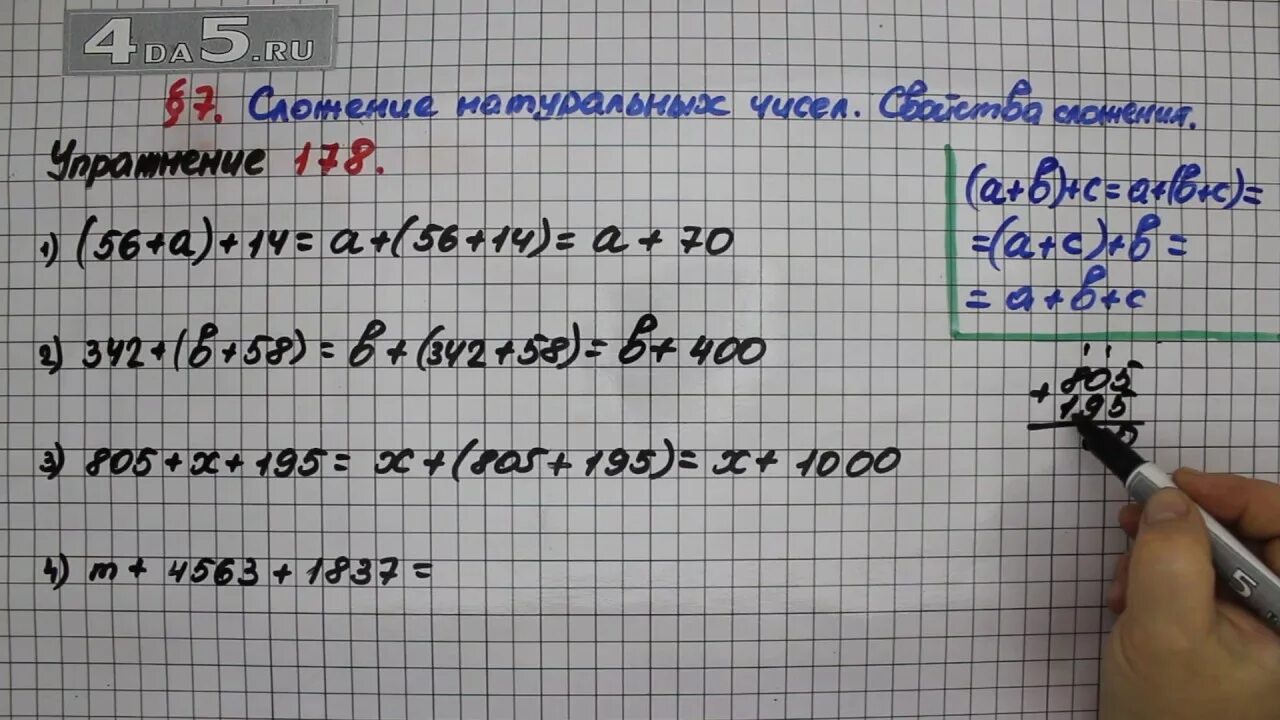 4DA5.RU
§7. Сложение натуральных чисел. Свойства сложения.
Упражнение 178.
(a+b)+c=a+(b+c)=
=(a+c)+b=
=a+b+c
1) (56+a)+14=a+(56+14)=a+70
2) 342+(b+58)=b+(342+58)=b+400
3) 805+x+195=x+(805+195)=x+1000
4) m+4563+1837=
+805
195
5